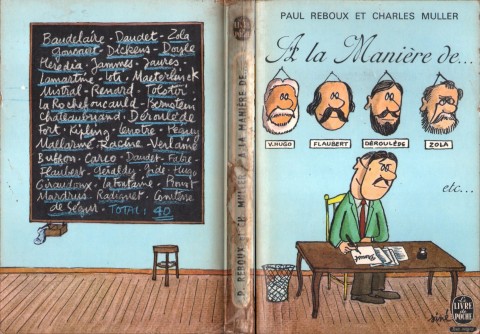 Baudelaire - Daudet - Zola
Goncourt - Dickens - Doyle
Heredia - Jammes - Jaurès -
Lamartine - Loti - Maeterlinck
Mistral - Renard - Tolstoï -
La Rochefoucauld - Bernstein
Chateaubriand - Déroulède
Fort - Kipling - Lenotre - Péguy
Mallarmé - Racine - Verlaine
Buffon - Carco - Daudet - Fabre
Flaubert - Géraldy - Gide - Hugo
Giraudoux - La Fontaine - Proust
Mardrus - Radiguet - Comtesse
de Ségur - TOTAL : 40
P. REBOUX - CH. MULLER - A LA MANIÈRE DE...
PAUL REBOUX ET CHARLES MULLER
A la Manière de...
V. HUGO
FLAUBERT
DÉROULÈDE
ZOLA
etc...
siné
LE
LIVRE
DE
POCHE